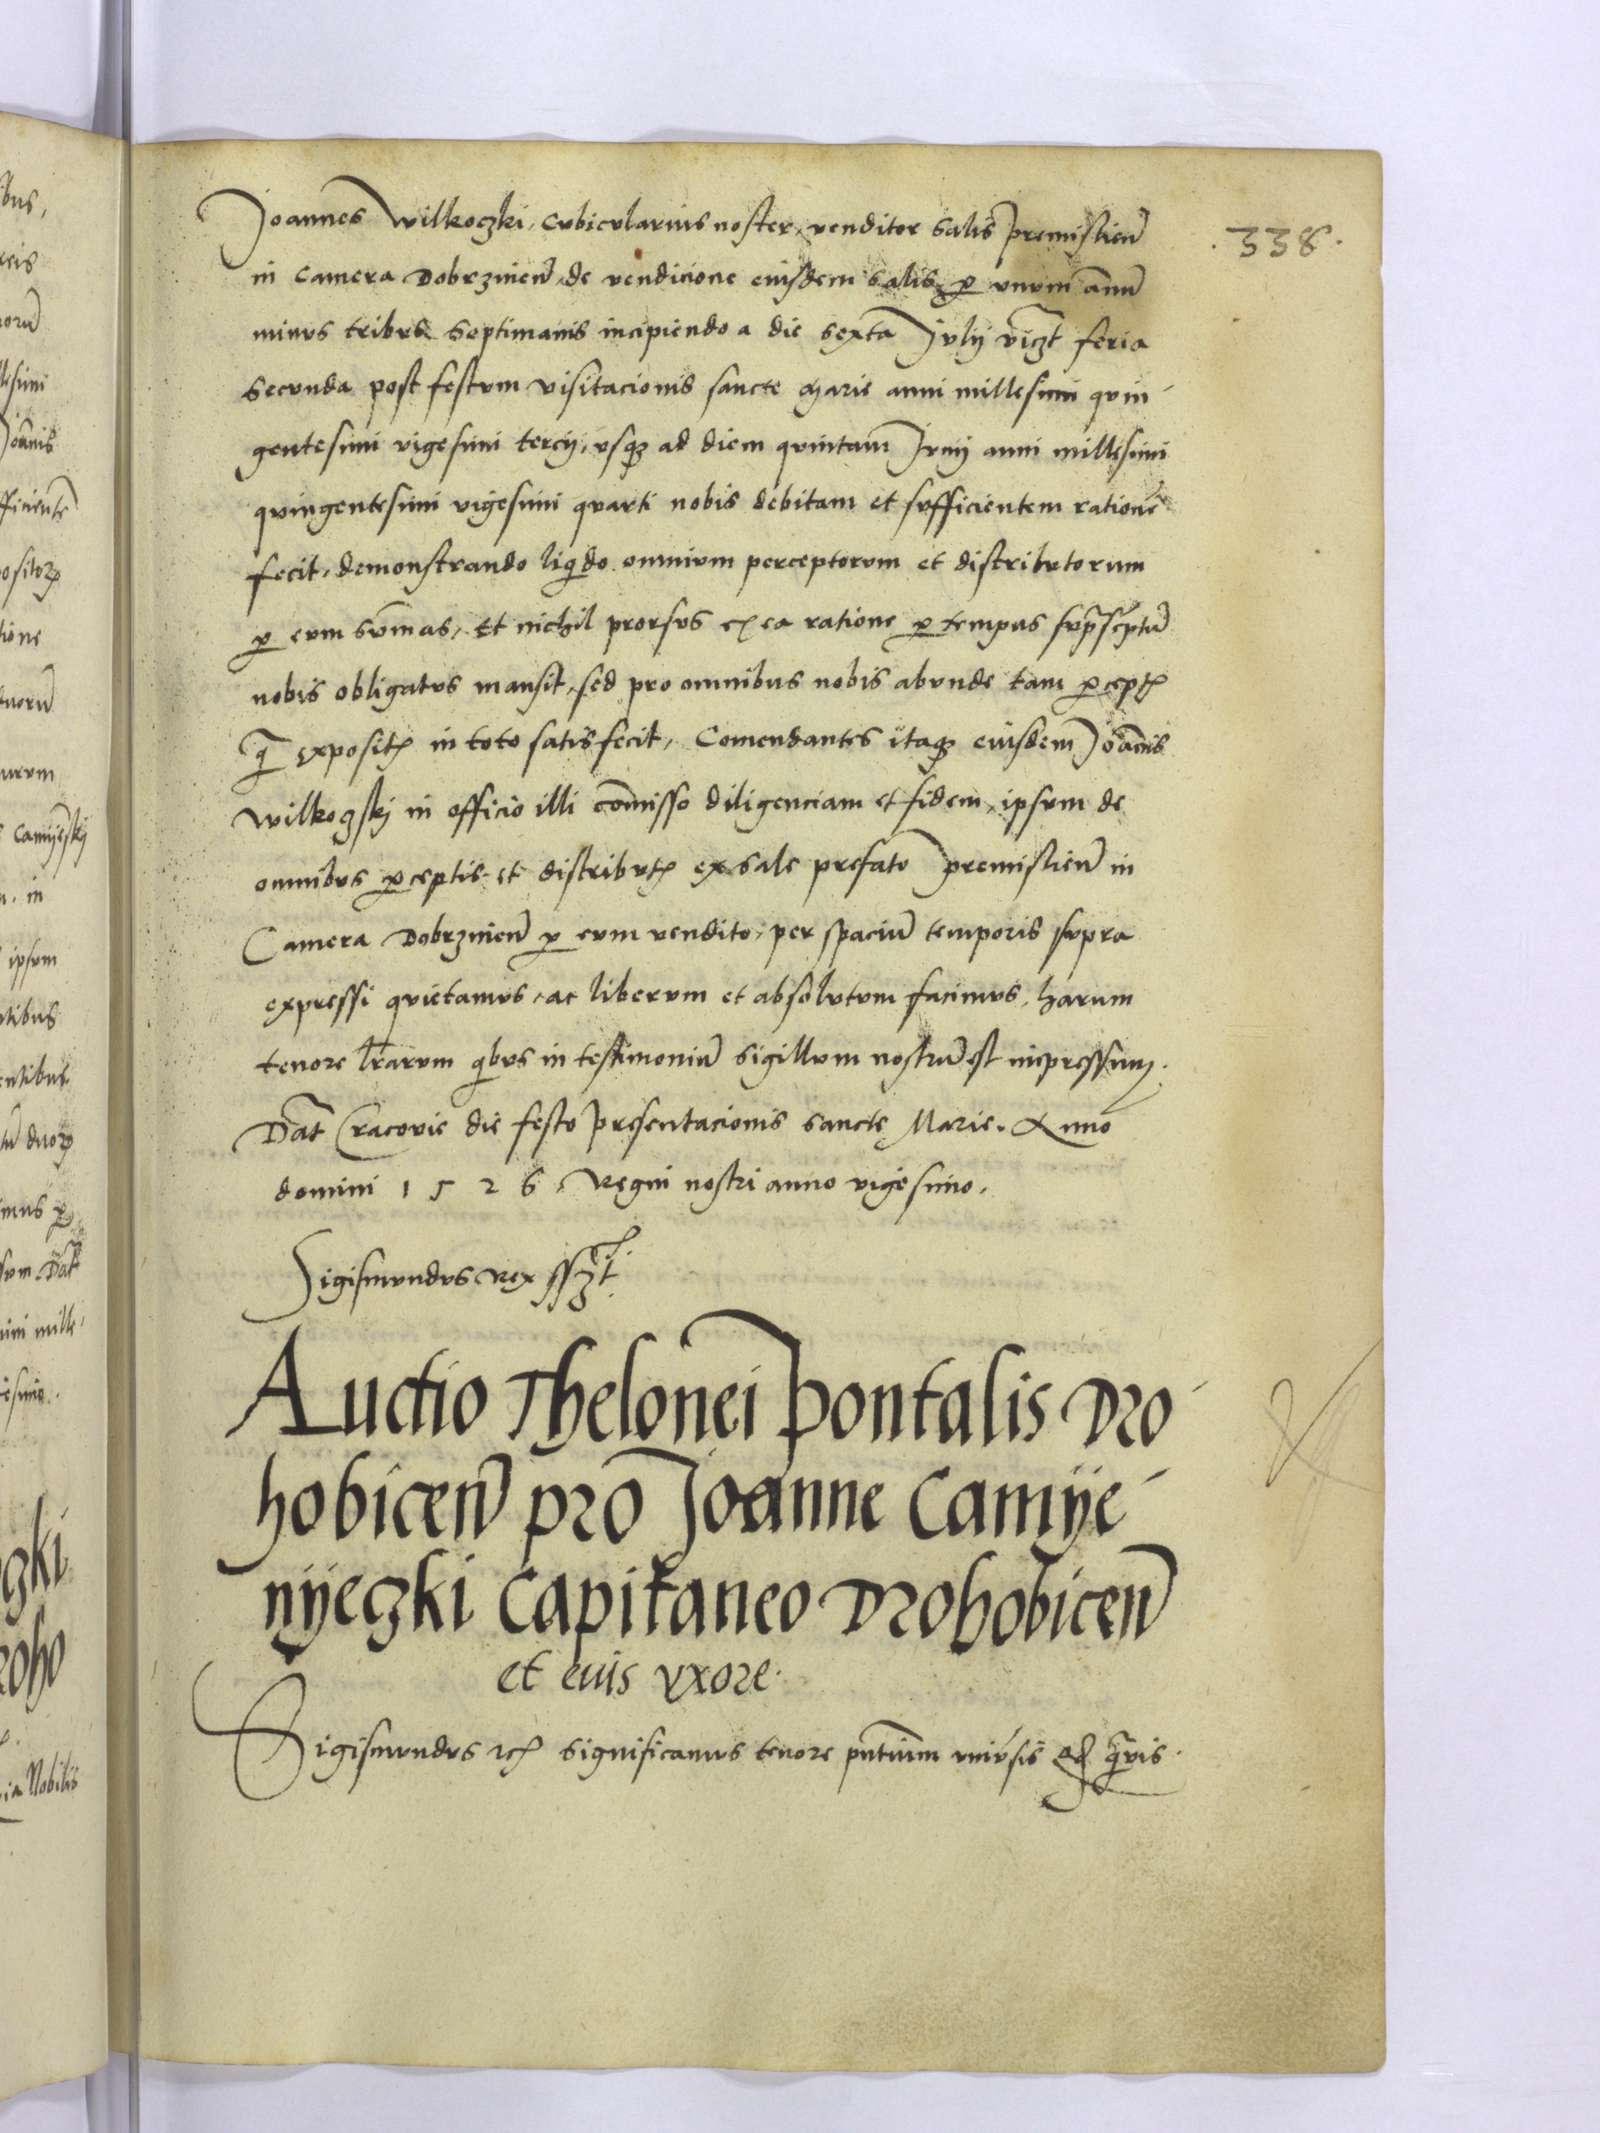 .338.
Joannes Wilkoczki, cubicularius noster, venditor salis premislien̄
in camera Dobrzinien̄, de vendicione eiusdem salis ꝑ vnum annū
minus tribus septimanis incipiendo a die sexta Julij vic̄zt feria
secunda post festum visitacionis sancte Marie anni millesimi quin
gentesimi vigesimi tercij, vsqꝫ ad diem quintam Junij anni millesimi
quingentesimi vigesimi quarti nobis debitam et sufficientem rationē
fecit, demonstrando liqido omnium perceptorum et distributorum
ꝑ eum sum̄as, Et nichil prorsus ex ea ratione ꝑ tempus sup̄sc̄ptū
nobis obligatus mansit, sed pro omnibus nobis abunde tam ꝑcept̄
q̄ exposit̄ in toto satisfecit, Comendantes itaqꝫ eiusdem Joān̄is
Wilkoczkj in officio illi com̄isso diligenciam et fidem, ipsum de
omnibus ꝑceptis et distribut̄ ex sale prefato premislien̄ in
Camera Dobrzinien̄ ꝑ eum vendito, per spaciū temporis supra
expressi quietamus, ac liberum et absolutum facimus, harum
tenore lr̄arum qibus in testimoniū sigillum nostrū est inpressum.
Dat̄ Cracovie die festo presentacionis sancte Marie. Anno
domini 1526, Regni nostri anno vigesimo.
Sigismundus Rex ssz̄t
Auctio Thelonei pontalis Dro
hobicen̄ pro Joanne Camÿe
nÿeczki Capitaneo Drohobicen̄
et euis vxore.
Sigismundus ꝛc̄ significamus tenore pn̄tium univ̄sis q̄vis.